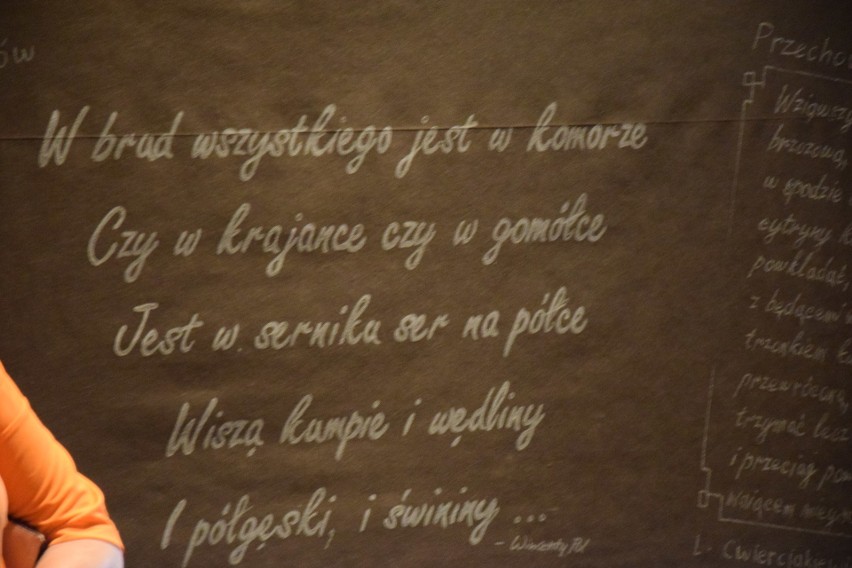 ów
W brud wszystkiego jest w komorze
Czy w krajance czy w gomółce
Jest w. serniku ser na półce
Wiszą kumpie i wędliny
I półgęski, i świniny ...
- Wincenty Pol
Przecho
Wziąwszy
brzozową,
w spodzie
cytryny
powkładać,
z będącemi
trzonkiem
przewróconą,
trzymać lecz
i przeciąg
wolącem
L. Ćwierciakie